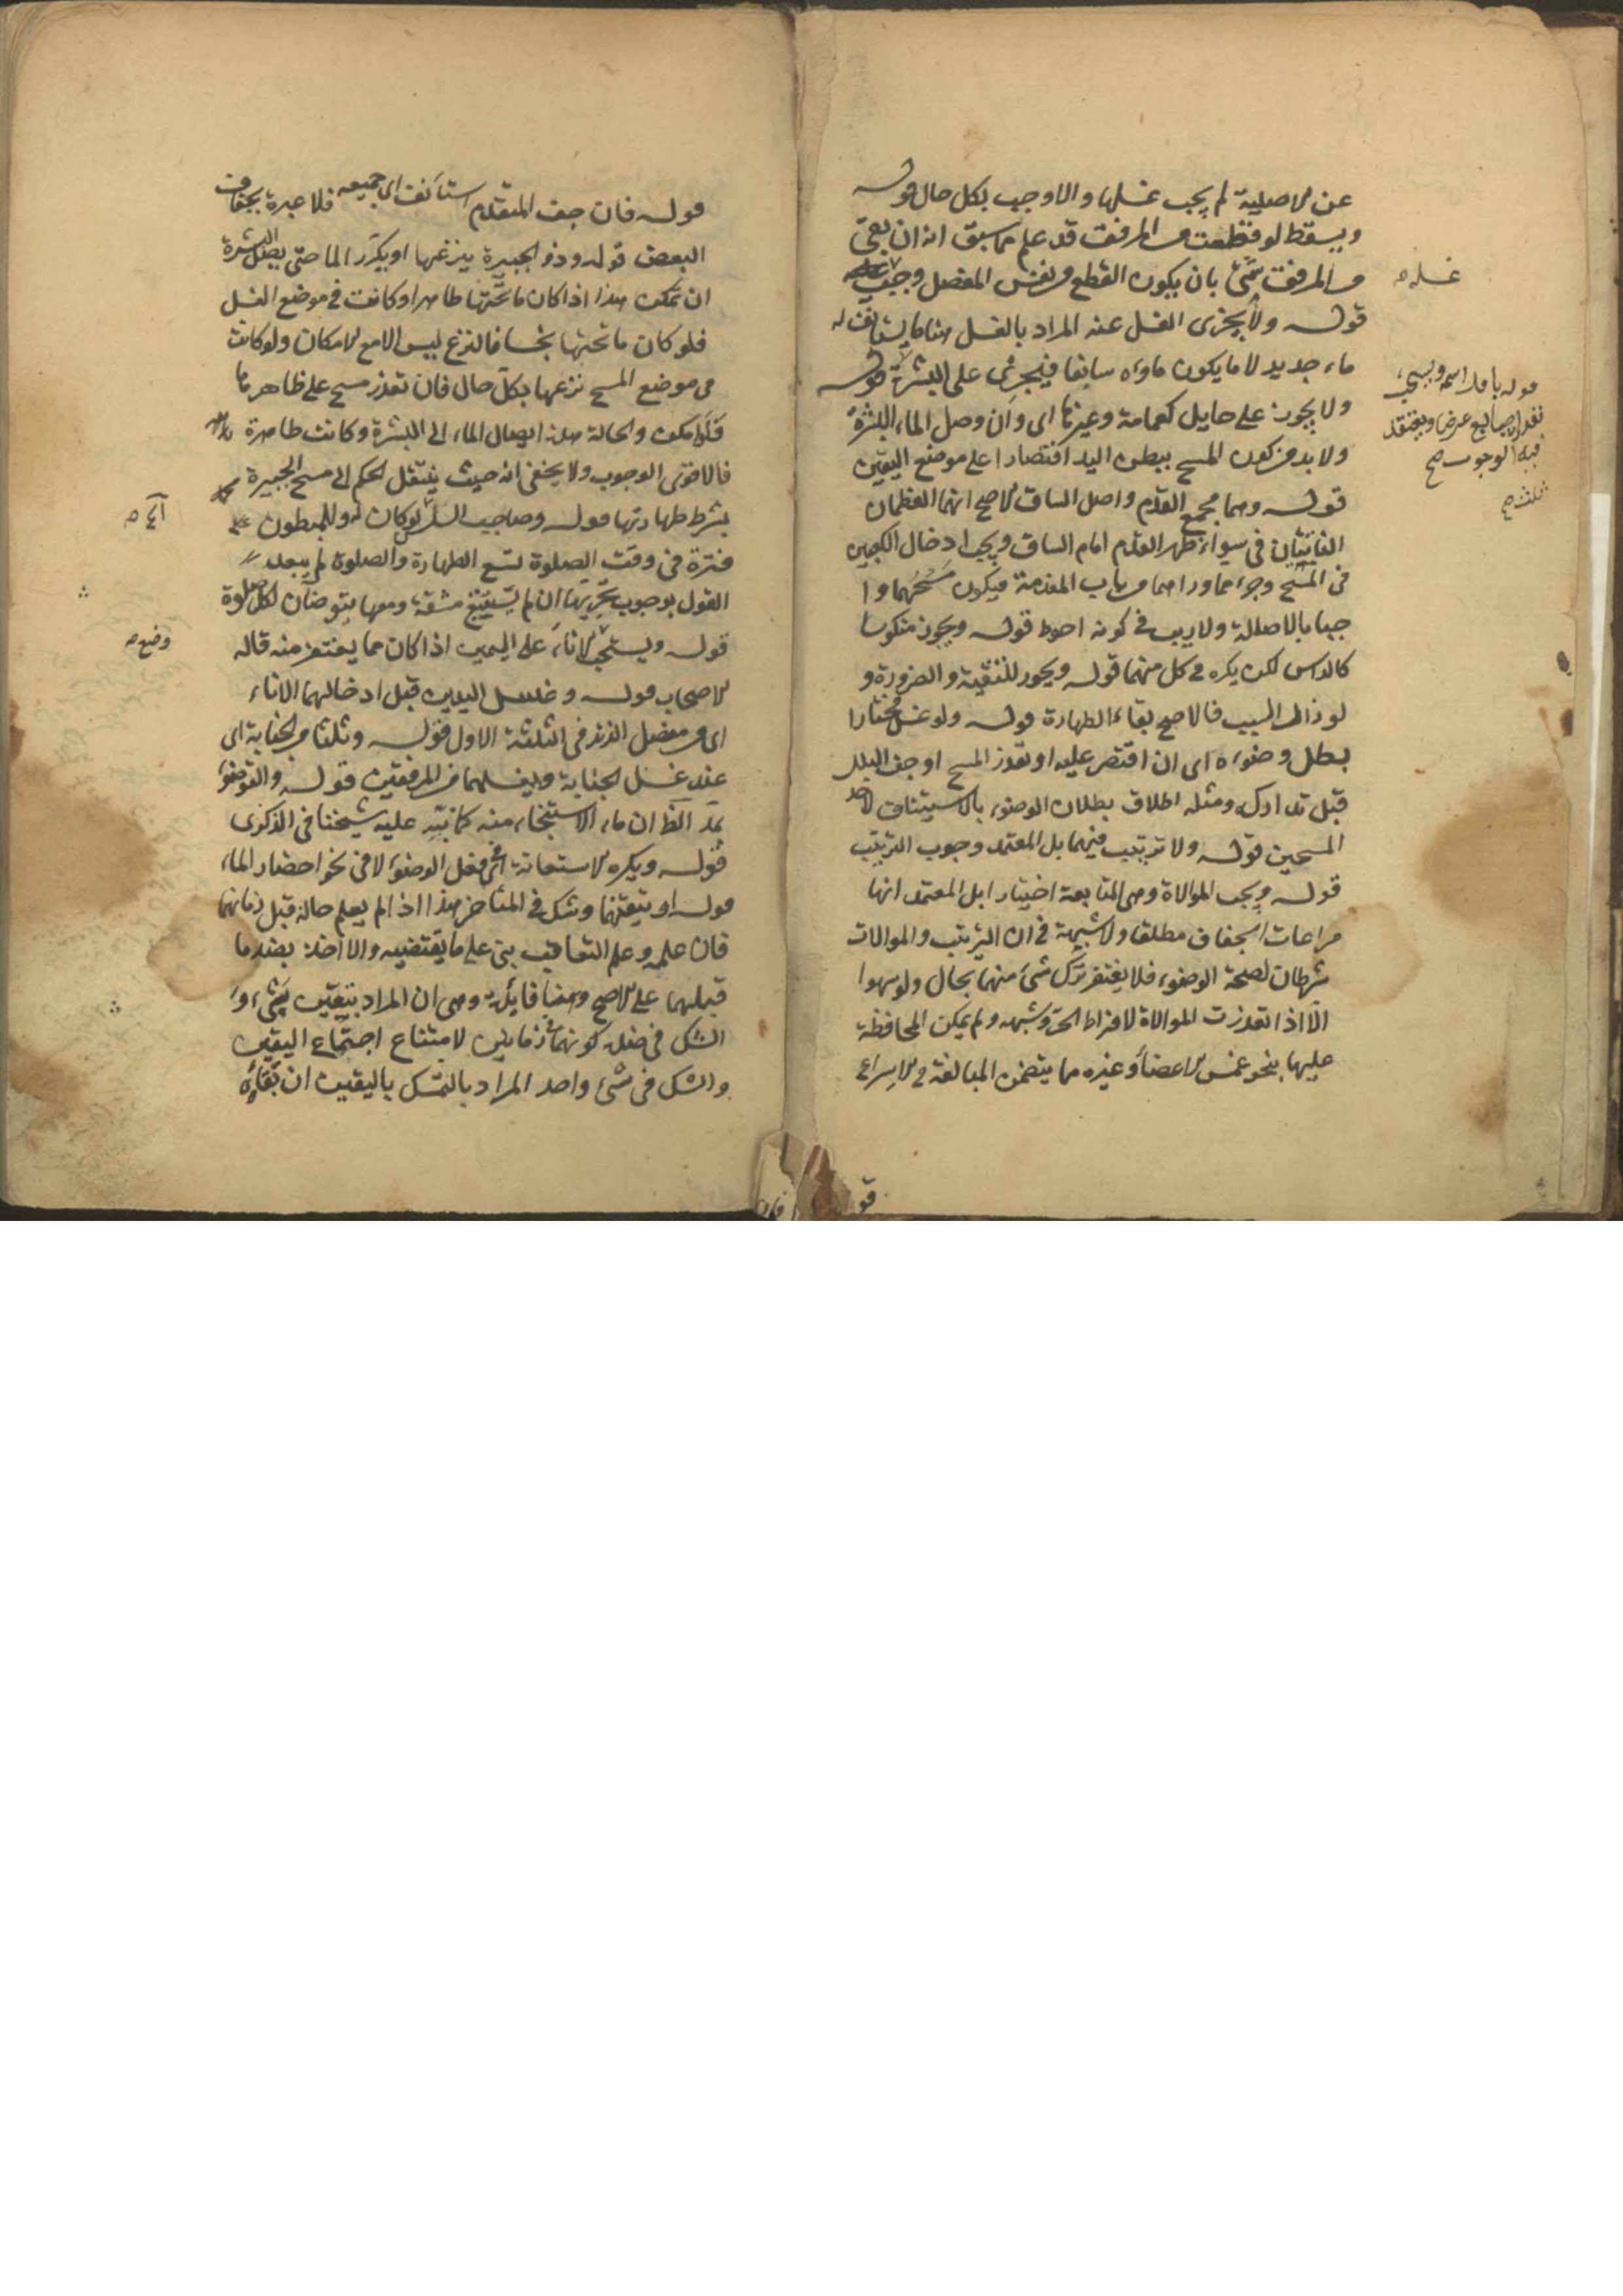 عن الاصلية لم يجب غسلها والا وجب بكل حال قوله
ويسقط لو قطعت من المرفق قد علم مما سبق انه ان بقى
من المرفق شئ بان يكون القطع من نفس المفصل وجب
غسله صح
قوله ولا يجزى الغسل عنه المراد بالغسل هنا ما يستانف له
ماء جديد لا ما يكون ماؤه سابغا فيجرى على البشرة قوله
قوله باقل اسمه ويستحب
بقدر ثلث اصابع عرضا ويعتقد
فيه الوجوب صح
ولا يجوز على حايل كعمامة وغيرها اى وان وصل الماء البشرة
ولا بد من كون المسح ببطن اليد اقتصارا على موضع اليقين
قوله وهما مجمع القدم واصل الساق الاصح انهما العظمان
الناتيان فى سواء ظهر القدم امام الساق ويجب ادخال الكعبين
فى المسح وجزء مما وراهما من باب المقدمة فيكون مسحهما وا
جبا بالاصالة ولا ريب فى كونه احوط قوله ويجوز منكوسا
كالراس لكن يكره فى كل منهما قوله ويجوز للتقية والضرورة و
لو زال السبب فالاصح بقاء الطهارة قوله ولو غسل مختارا
بطل وضوءه اى ان اقتصر عليه او تعذر المسح او جف البلل
قبل تداركه ومثله اطلاق بطلان الوضوء بالاستيناف لاحد
المسحين قوله ولا ترتيب فيهما بل المعتمد وجوب الترتيب
قوله ويجب الموالاة وهى المتابعة اختيارا بل المعتمد انها
مراعات الجفاف مطلقا ولا شبهة فى ان الترتيب والموالات
شرطان لصحة الوضوء فلا يغتفر ترك شئ منهما بحال ولو سهوا
الا اذا تعذرت الموالاة لافراط الحر وشبهه ولم يمكن المحافظة
عليها بنحو غمس الاعضاء وغيره مما يتضمن المبالغة فى الاسراع
قوله فان جف المتقدم استأنف اى جميعه فلا عبرة بجفاف
البعض قوله وذو الجبيرة ينزعها او يكرر الما حتى يصل البشرة
ان تمكن هذا اذا كان ما تحتها طاهرا وكانت فى موضع الغسل
فلو كان ما تحتها نجسا فالنزع ليس الا مع الامكان ولو كانت
فى موضع المسح نزعها بكل حال فان تعذر مسح على ظاهرها
فلو امكن والحالة هذه ايصال الماء الى البشرة وكانت طاهرة
فالاقوى الوجوب ولا يخفى انه حيث ينتقل الحكم الى مسح الجبيرة
بشرط طهارتها قوله وصاحب السلس لو كان له وللمبطون
فترة فى وقت الصلوة تسع الطهارة والصلوة لم يبعد
القول بوجوب تحريها ان لم يستتبع مشقة ومعها يتوضان لكل صلوة
قوله ويستحب الاناء على اليمين اذا كان مما يغترف منه قاله
وضع صح
الاصحاب قوله وغسل اليدين قبل ادخالهما الاناء
اى من مفصل الزند فى الثلثة الاول قوله وثلثا من الجنابة اى
عند غسل الجنابة ويغسلهما من المرفقين قوله والتوضؤ
بمد الظ ان ماء الاستنجاء منه كما نبه عليه شيخنا فى الذكرى
قوله ويكره الاستعانة اى فى فعل الوضوء لا فى نحو احضار الماء
قوله او تيقنهما وشك فى المتاخر هذا اذا لم يعلم حاله قبل زمانهما
فان علمه وعلم التعاقب بنى على ما يقتضيه والا اخذ بضد ما
قبلهما على الاصح وهنا فائدة وهى ان المراد بتيقن شئ و
الشك فى ضده كونهما زمانين لامتناع اجتماع اليقين
والشك فى شئ واحد المراد بالتمسك باليقين ان بقاءه